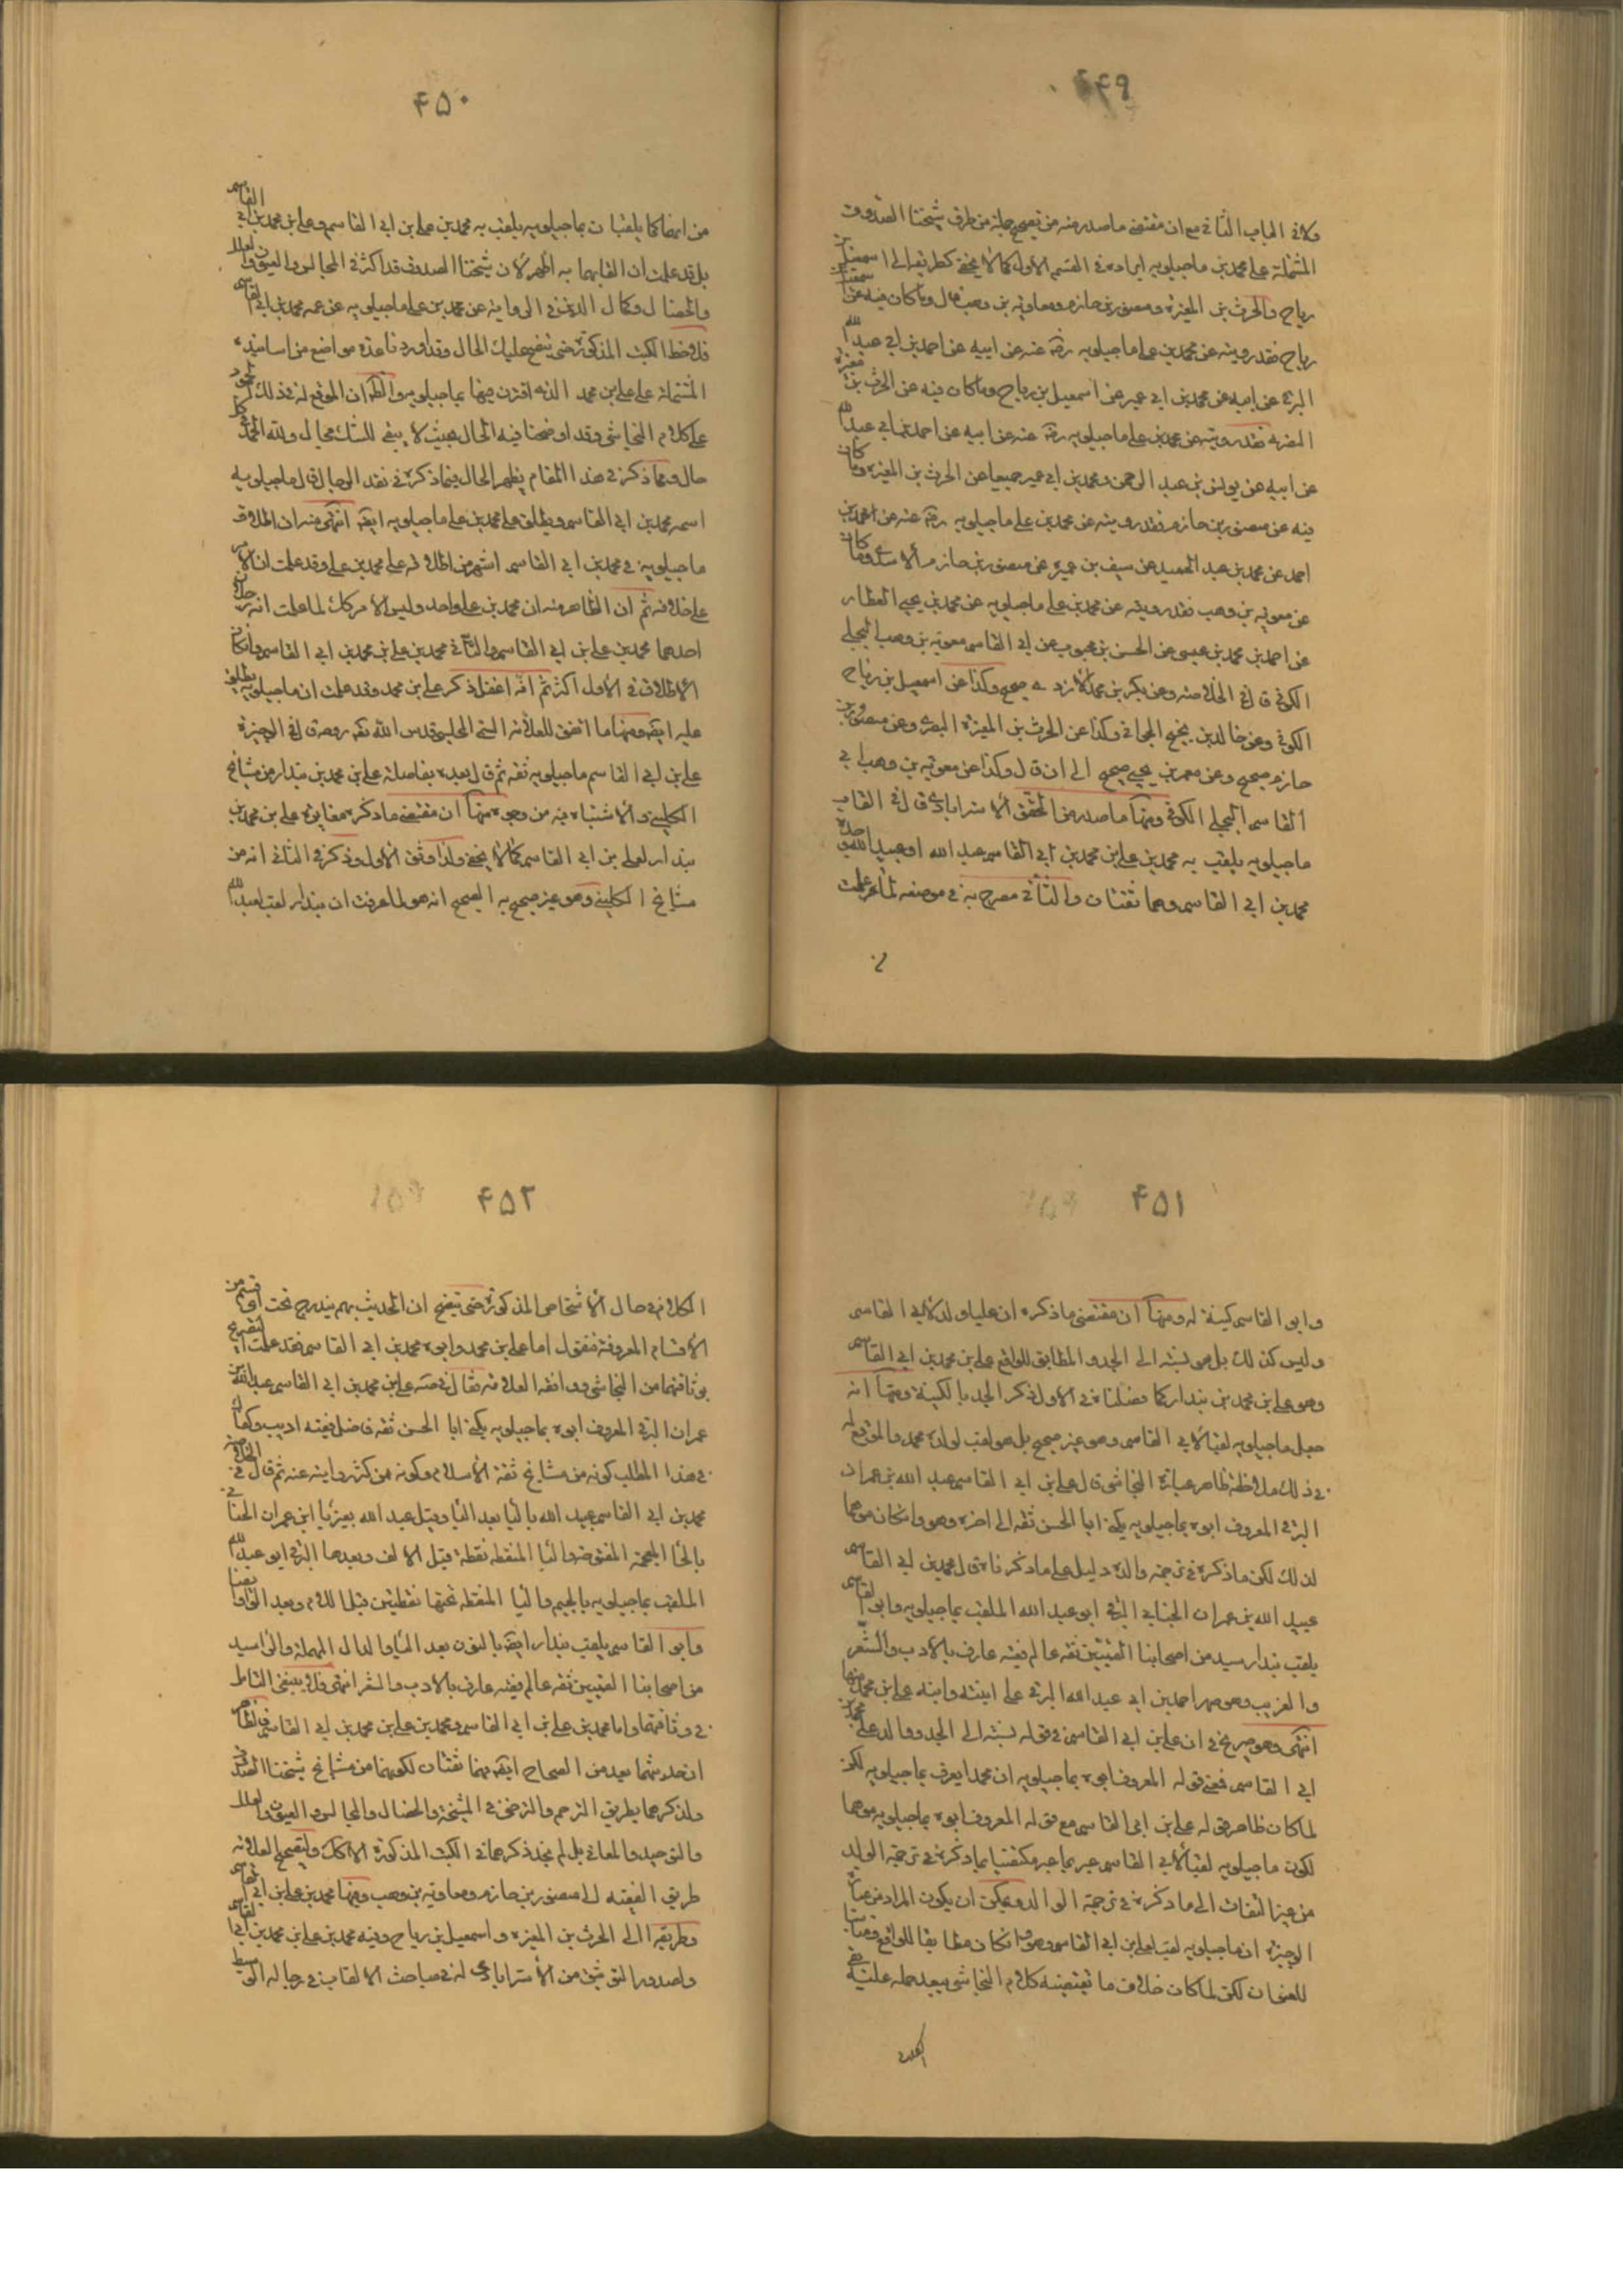 ۴۴۹
ولا في الباب الثاني مع ان مقتضى ما صدر منه من تصحيح جملة من طرق شيخنا الصدوق
المشتملة على محمد بن ماجيلويه ايراده في القسم الاول كما لا يخفى كطريقه الى اسمعيل بن
رياح والحرث بن المغيرة ومنصور بن حازم ومعاوية بن وهب قال وما كان فيه عن اسمعيل بن
رياح فقد رويته عن محمد بن علي ماجيلويه رضه عنه عن ابيه عن احمد بن ابي عبد الله
البرقي عن ابيه عن محمد بن ابي عمير عن اسمعيل بن رياح وما كان فيه عن الحرث بن مغيرة
النصري فقد رويته عن محمد بن علي ماجيلويه رضه عنه عن ابيه عن احمد بن ابي عبد الله
عن ابيه عن يونس بن عبد الرحمن ومحمد بن ابي عمير جميعا عن الحرث بن المغيرة وما كان
فيه عن منصور بن حازم فقد رويته عن محمد بن علي ماجيلويه رضه عنه عن محمد بن
احمد عن محمد بن عبد الحميد عن سيف بن عميرة عن منصور بن حازم الاسدي وما كان
عن معوية بن وهب فقد رويته عن محمد بن علي ماجيلويه عن محمد بن يحيى العطار
عن احمد بن محمد بن عيسى عن الحسن بن محبوب عن ابي القاسم معوية بن وهب البجلي
الكوفي قال في الخلاصة وعن بكر بن محمد الازدي صحيح وكذا عن اسمعيل بن رياح
الكوفي وعن خالد بن نجيح الجواني وكذا عن الحرث بن المغيرة البصري وعن منصور بن
حازم صحيح وعن معمر بن يحيى صحيح الى ان قال وكذا عن معوية بن وهب ابي
القاسم البجلي الكوفي ومنها ما صدر من المحقق الاسترابادي قال في القاب
ماجيلويه يلقب به محمد بن علي بن محمد بن ابي القاسم عبد الله او عبيد الله وجده
محمد بن ابي القاسم وهما ثقتان والثاني مصرح به في موضعه لما عرفت
۴۵۰
من انهما كما يلقبان بماجيلويه يلقب به محمد بن علي بن ابي القاسم وعلي بن محمد بن ابي القاسم
بل قد علمت ان القابهما به اظهر لان شيخنا الصدوق قد اكثر في المجالس والعيون والعلل
والخصال وكمال الدين في الرواية عن محمد بن علي ماجيلويه عن عمه محمد بن ابي القاسم
فلاحظ الكتب المذكورة حتى يتضح عليك الحال وقد اوردنا عدة مواضع من اسانيده
المشتملة على علي بن محمد الذي اقترن فيها بماجيلويه والظ ان الموقع له في ذلك
على كلام النجاشي وقد اوضحنا فيه الحال بحيث لا يبقى للشك مجال ولله الحمد على كل
حال ومما ذكر في هذا المقام يظهر الحال فيما ذكره في نقد الرجال قال ماجيلويه
اسمه محمد بن ابي القاسم ويطلق على محمد بن علي ماجيلويه ايضا انتهى منه ان اطلاق
ماجيلويه في محمد بن ابي القاسم اشهر من اطلاقه على محمد بن علي وقد علمت ان الامر
على خلافه ثم ان الظاهر منه ان محمد بن علي واحد وليس الامر كك لما علمت انه رجلان
احدهما محمد بن علي بن ابي القاسم والثاني محمد بن علي بن محمد بن ابي القاسم وان كان
الاطلاق في الاول اكثر ثم انه اغفل ذكر علي بن محمد وقد علمت ان ماجيلويه يطلق
عليه ايضا ومنها ما اتفق للعلامة التقي المجلسي قدس الله تع روحه قال في الوجيزة
علي بن ابي القاسم ماجيلويه ثقة ثم قال بعده بفاصلة علي بن محمد بن بندار من مشايخ
الكليني والاشتباه فيه من وجوه منها ان مقتضى ما ذكره مغايرة علي بن محمد بن
بندار لعلي بن ابي القاسم كما لا يخفى ولذا وثق الاول وذكر في الثاني انه من
مشايخ الكليني وهو غير صحيح به الصحيح انه هو لما عرفت ان بندار لقب لعبد الله
۴۵۱
وابو القاسم كنية له ومنها ان مقتضى ما ذكره ان عليا ولد لابي القاسم
وليس كذلك بل هو نسبة الى الجد والمطابق للواقع علي بن محمد بن ابي القاسم
وهو علي بن محمد بن بندار كما فصلنا في الاول ذكر الجد بالكنية ومنها انه
جعل ماجيلويه لقبا لابي القاسم وهو غير صحيح بل هو لقب لولده محمد والموقع له
في ذلك ملاحظة ظاهر عبارة النجاشي قال علي بن ابي القاسم عبد الله بن عمران
البرقي المعروف ابوه بماجيلويه يكنى ابا الحسن ثقة الى اخره وهو وان كان موهما
لذلك لكن ما ذكره في ترجمة والده دليل على ما ذكرنا قال محمد بن ابي القاسم
عبيد الله بن عمران الجنابي البرقي ابو عبد الله الملقب بماجيلويه وابو القاسم
يلقب بندار سيد من اصحابنا القميين ثقة عالم فقيه عارف بالادب والشعر
والغريب وهو صهر احمد بن ابي عبد الله البرقي على ابنته وابنه علي بن محمد منها
انتهى وهو صريح في ان علي بن ابي القاسم في قوله نسبة الى الجد ووالد علي محمد بن
ابي القاسم فمعنى قوله المعروف ابوه بماجيلويه ان محمدا يعرف بماجيلويه لكن
لما كان ظاهر قوله علي بن ابي القاسم مع قوله المعروف ابوه بماجيلويه موهما
لكون ماجيلويه لقبا لابي القاسم عبر بما عبر مكتفيا بما ذكره في ترجمة الولد
من غير التفات الى ما ذكره في ترجمة الوالد ويمكن ان يكون المراد من عبارة
الوجيزة ان ماجيلويه لقب لعلي بن ابي القاسم وهو وان كان مطابقا للواقع ومناسبا
للعنوان لكن لما كان خلاف ما تقتضيه كلام النجاشي يبعد حمله عليه
۴۵۲
الكلام في حال الاشخاص المذكورة حتى يتضح ان الحديث بهم يندرج تحت اي قسم من
الاقسام المعروفة فنقول اما علي بن محمد وابوه محمد بن ابي القاسم فقد علمت التصريح
بوثاقتهما من النجاشي ووافقه العلامة فقال في صه علي بن محمد بن ابي القاسم عبد الله بن
عمران البرقي المعروف ابوه بماجيلويه يكنى ابا الحسن ثقة فاضل فقيه اديب وكفاك
في هذا المطلب كونه من مشايخ ثقة الاسلام وكونه ممن كثر روايته عنه ثم قال في الخلاصة
محمد بن ابي القاسم عبيد الله بالياء بعد الباء وقيل عبد الله بغير يا ابن عمران الجنابي
بالخا المعجمة المفتوحة والبا المنقطة نقطة قبل الالف وبعدها البرقي ابو عبد الله
الملقب بماجيلويه بالجيم والياء المنقطة تحتها نقطتين قبل اللام وبعد الواو ايضا
وابو القاسم يلقب بندار ايضا بالنون بعد الباء والدال المهملة والراء سيد
من اصحابنا القميين ثقة عالم فقيه عارف بالادب والشعر انتهى فلا ينبغي التامل
في وثاقتهما واما محمد بن علي بن ابي القاسم ومحمد بن علي بن محمد بن ابي القاسم فالظاهر
ان حديثهما يعد من الصحاح ايضا فهما ثقتان لكونهما من مشايخ شيخنا الصدوق
ولذكرهما بطريق الترحم والترضي في المشيخة والخصال والمجالس والعيون والعلل
والتوحيد والمعاني بل لم نجد ذكرهما في الكتب المذكورة الا كك ولتصحيح العلامة
طريق الفقيه الى منصور بن حازم ومعاوية بن وهب وفيهما محمد بن علي بن ابي القاسم
وطريقه الى الحرث بن المغيرة واسمعيل بن رياح وفيه محمد بن علي بن محمد بن ابي القاسم
ولصدور التوثيق من الاسترابادي له في مباحث الالقاب في رجاله الوسيط